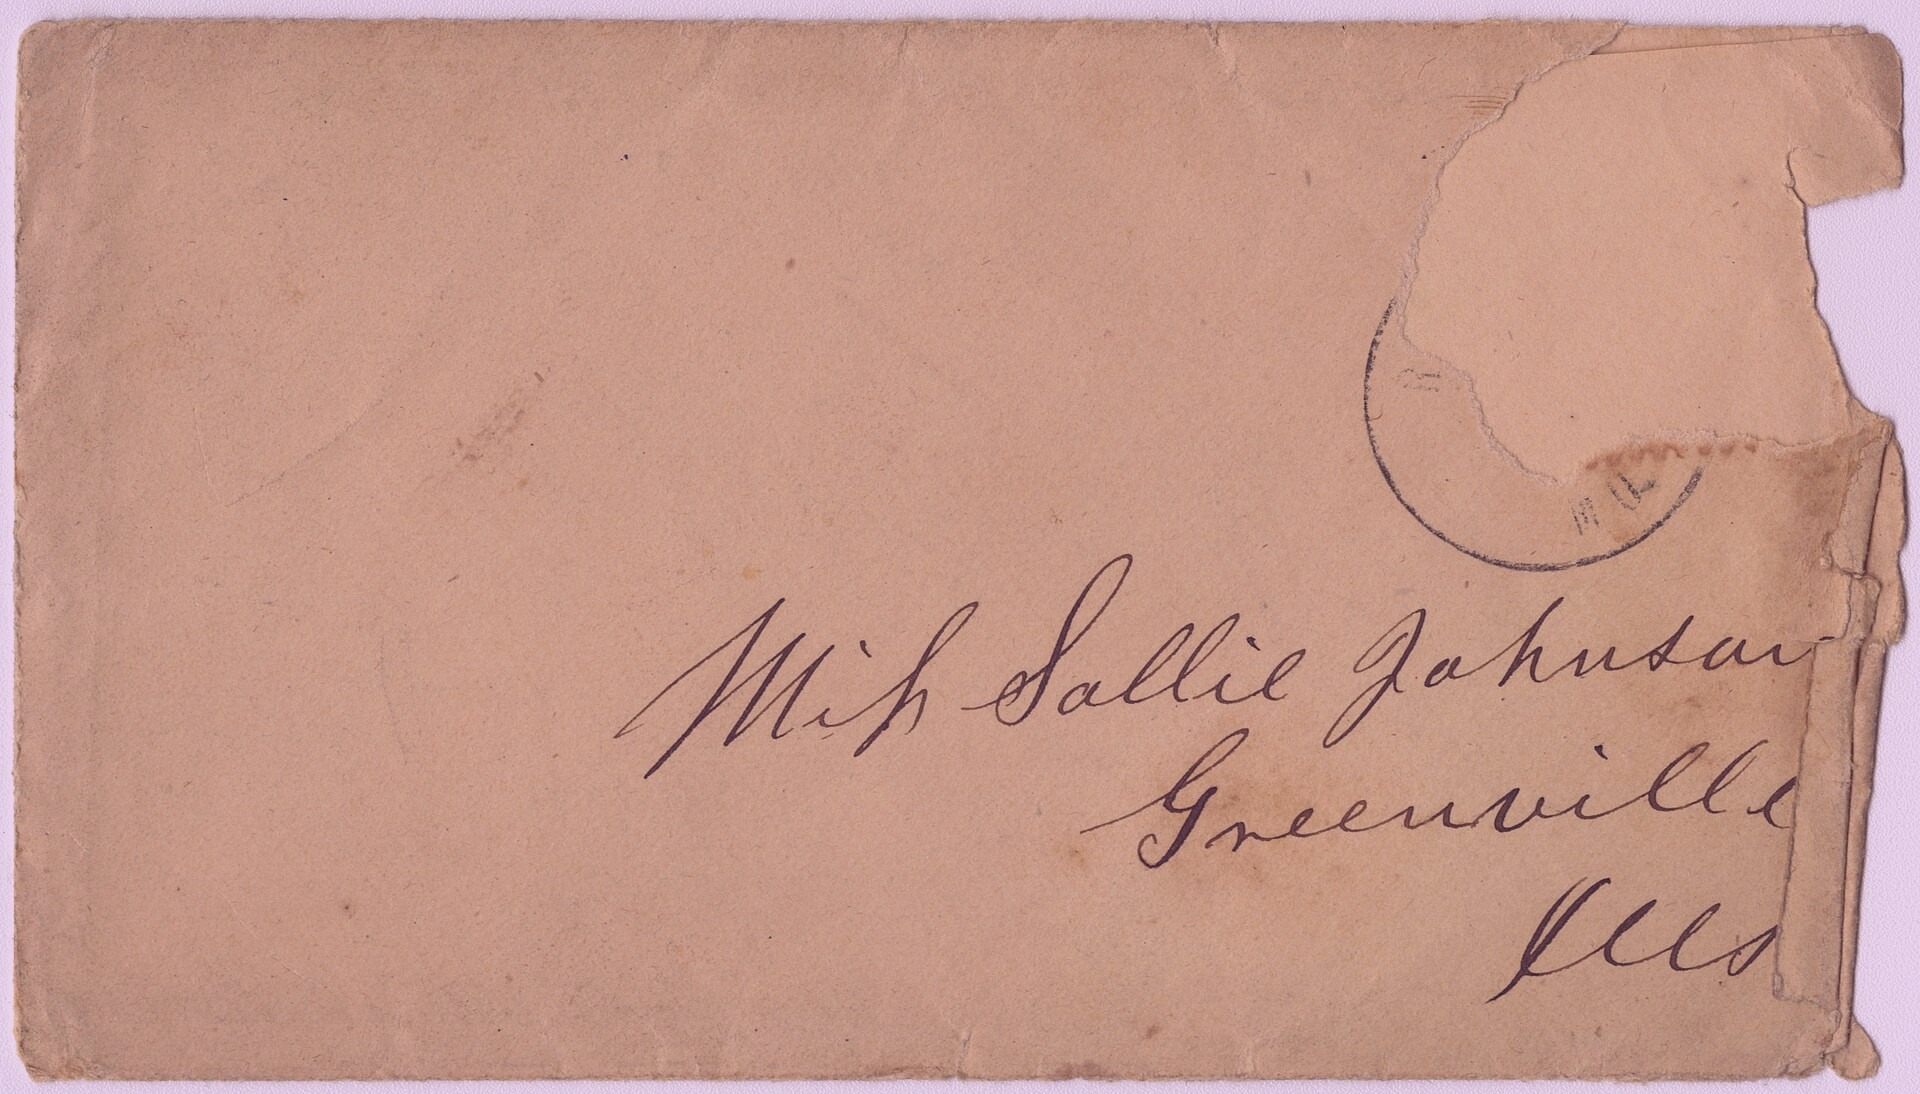 Miss Sallie Johnson
Greenville
Ills